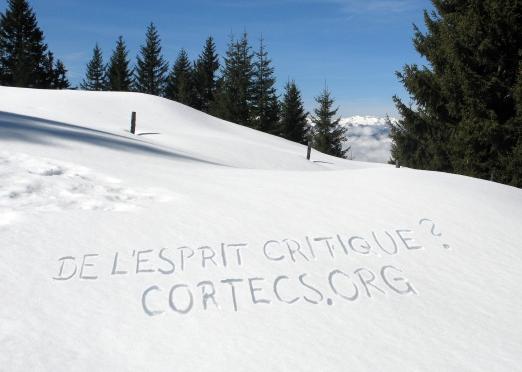 DE L'ESPRIT CRITIQUE?
CORTECS.ORG